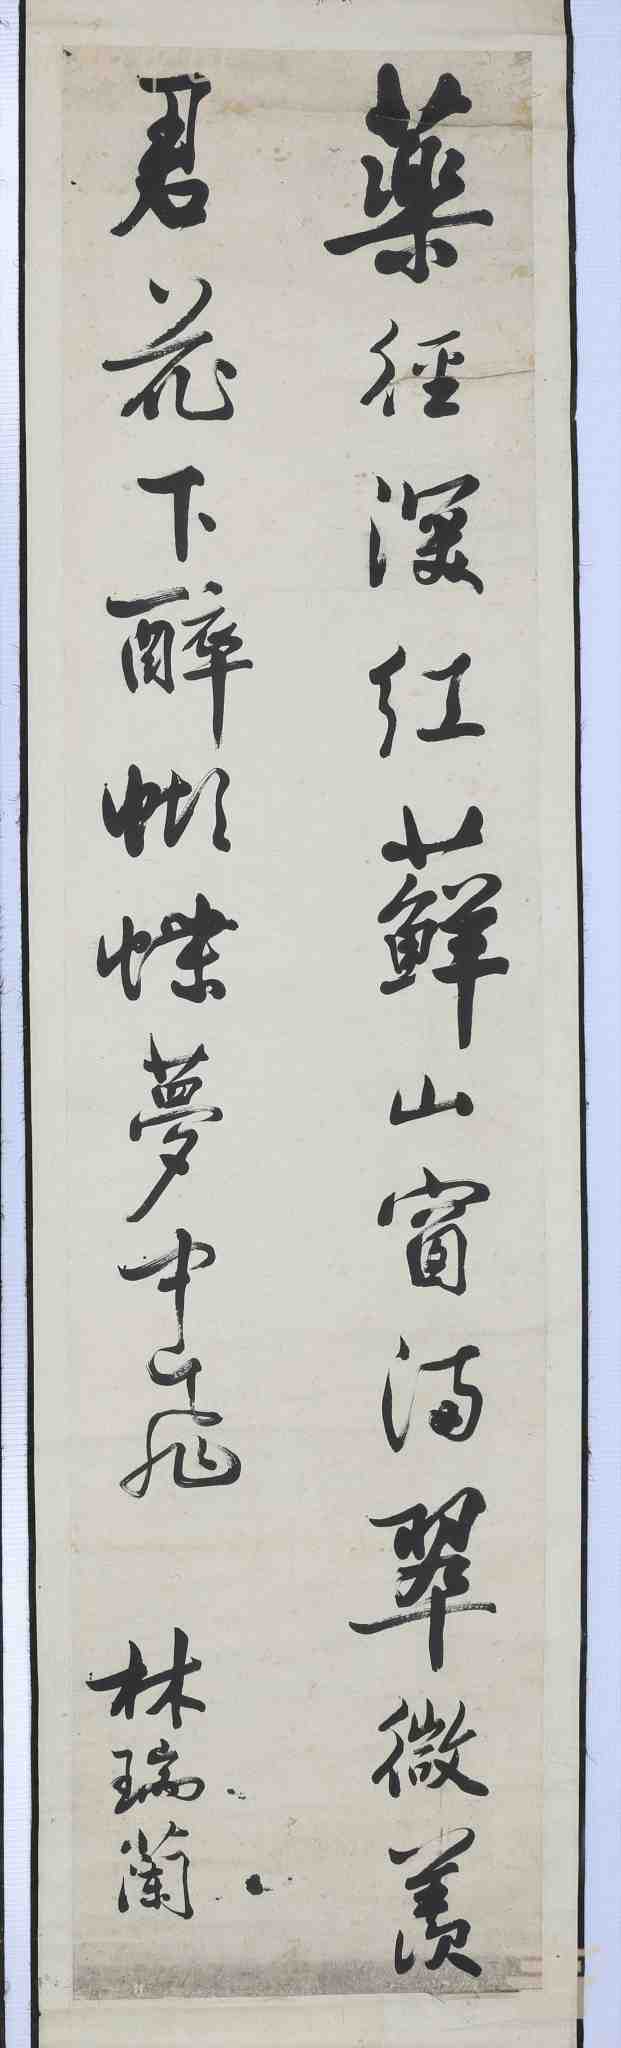 藥徑深紅蘚山窗滿翠微羨
君花下醉蝴蝶夢中飛
林瑞蘭